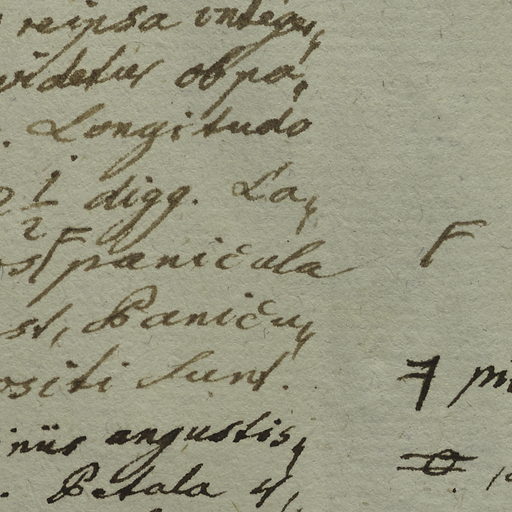 reipsa integri,
videtur ob pa,
. Longitudo
1/2 digg. La,
F panicula F
st, Panicu,
ositi sunt.
7 pi
iniis angustis,
. Petala 4,